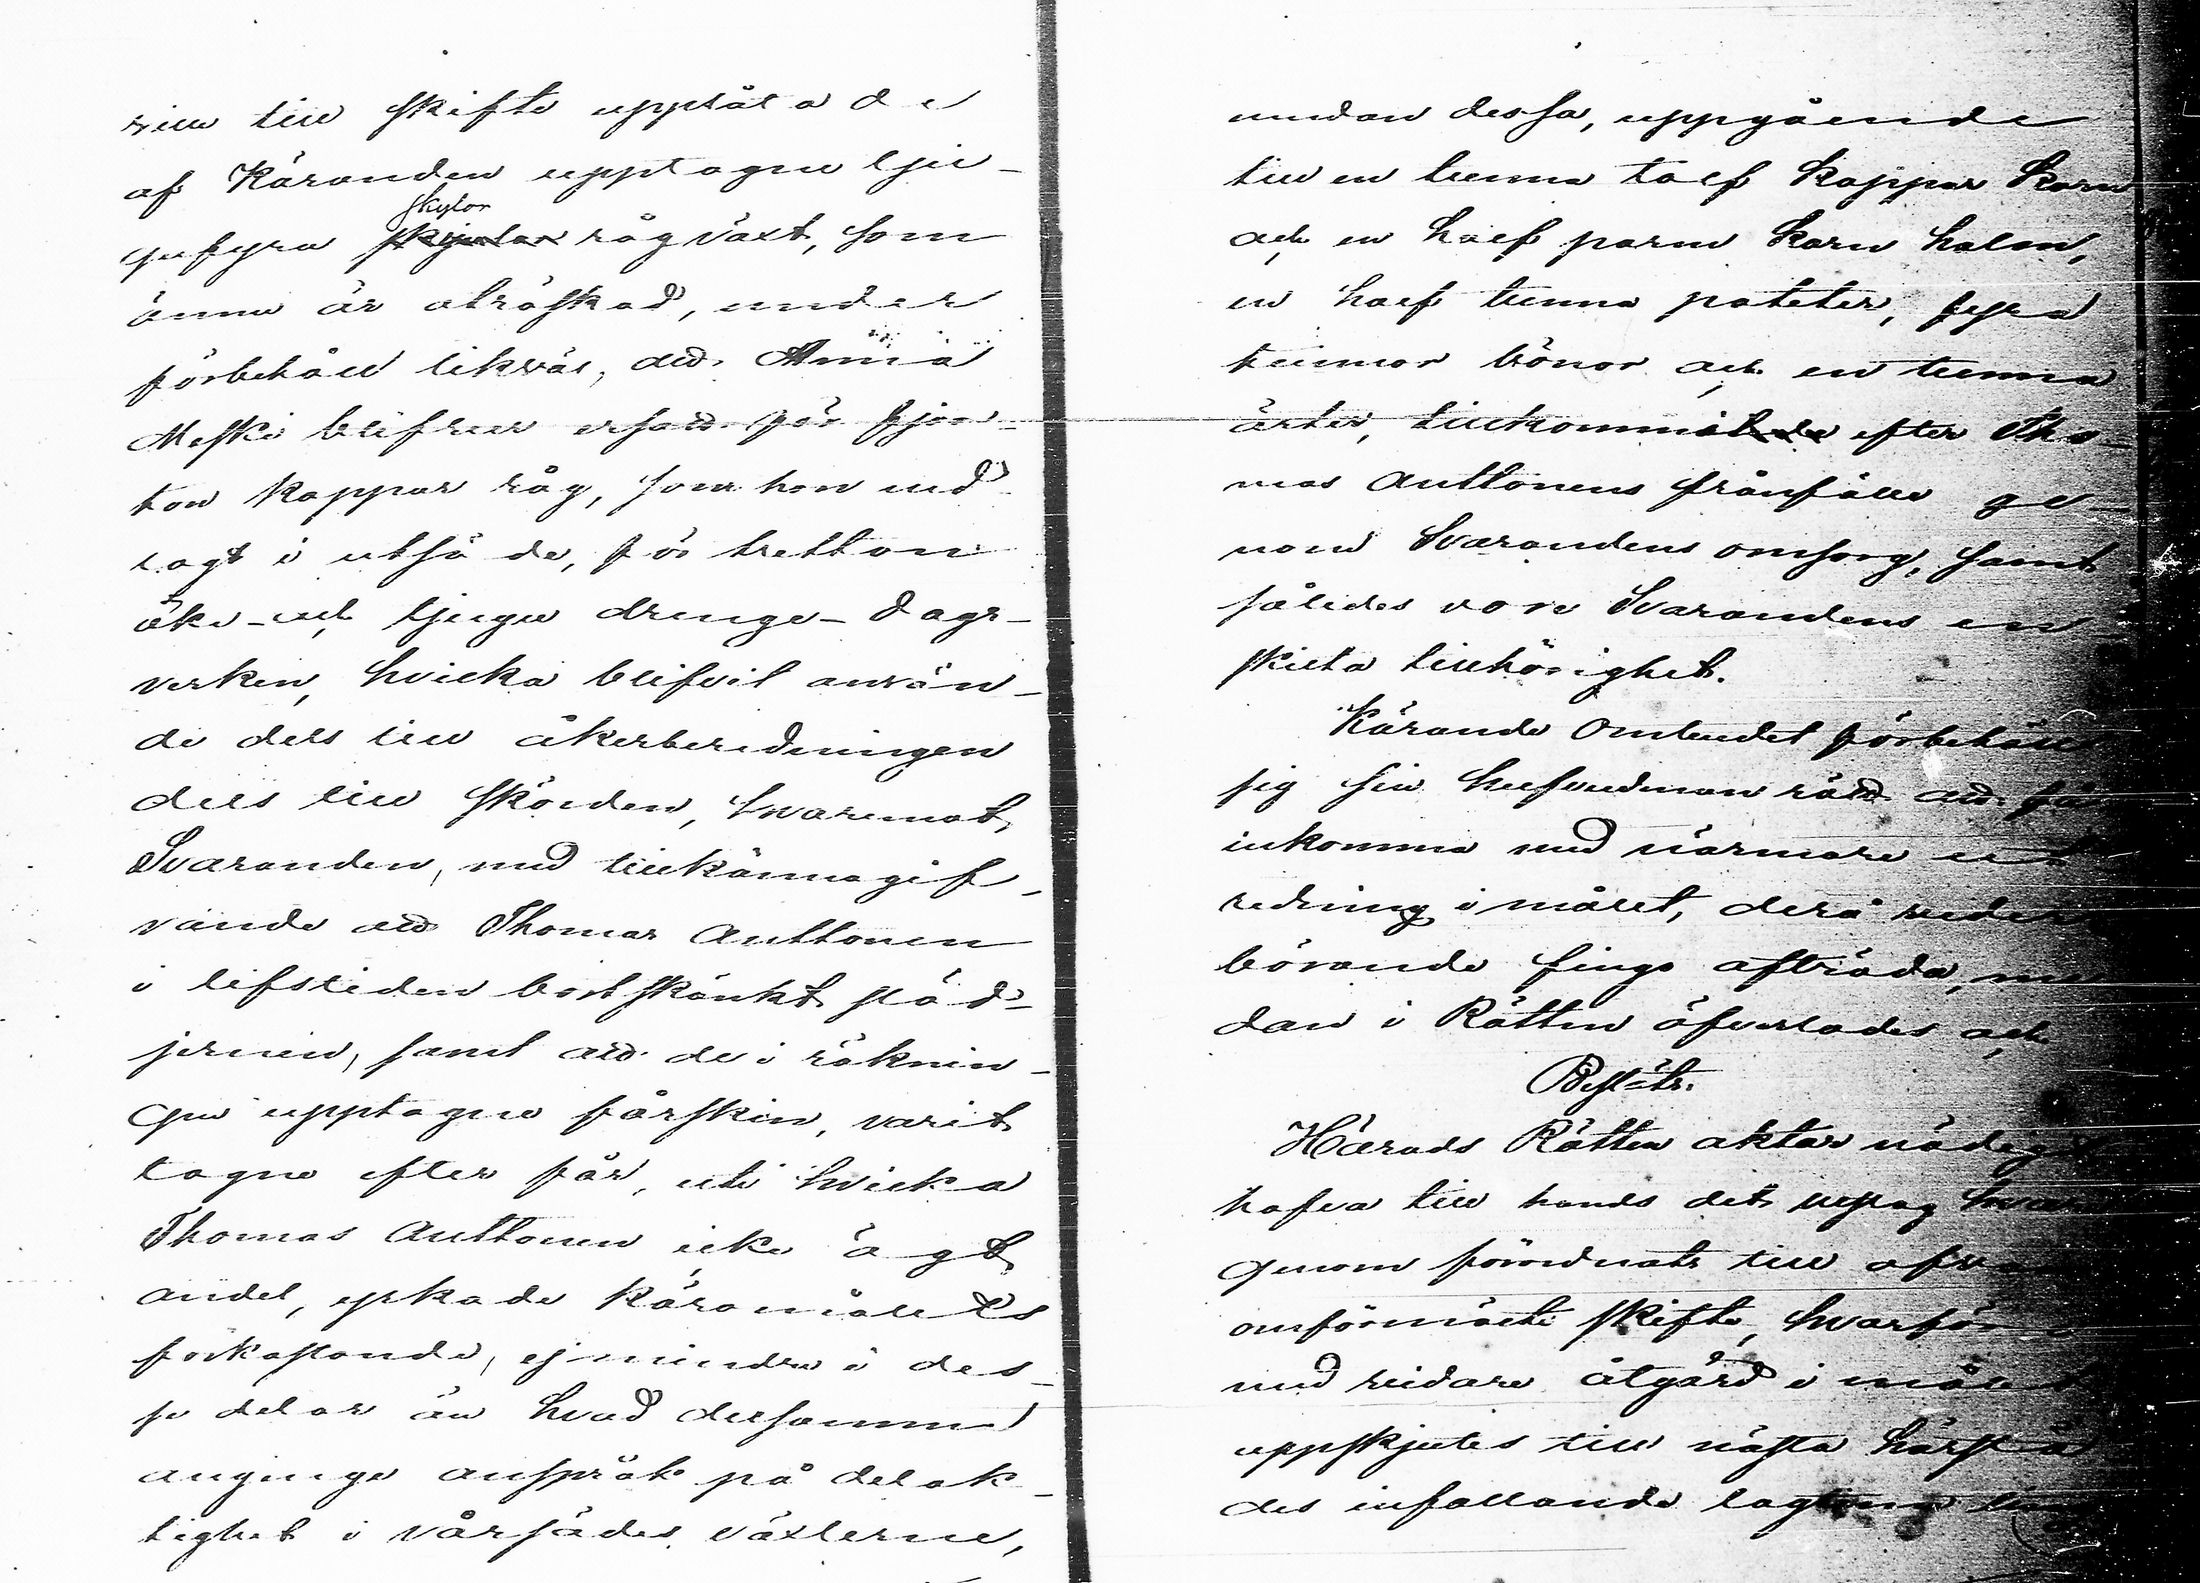 till skifte upplåta de
af Käranden upptagne tju-
gufyra skylar rågväxt, som
ännu är otröskad, under
förbehåll likväl, att Anna
Meski blifver ersatt för fjor-
ton kappar råg, som hon ned-
lagt i utsäde, för tretton
öke- och tjugu drenge-dags-
verken, hvilka blifvit använ-
de dels till åkerberedningen
dels till skörden, hvaremot
Svaranden, med tillkännagif-
vande att Thomas Anttonen
i lifstiden bortskänkt släd-
jernen, samt att de i räknin-
gen upptagne fårskin, varit
tagne efter får, uti hvilka
Thomas Anttonen icke ägt
andel, yrkade käromålets
förkastande, ej mindre i des-
se delar än hvad detsamma
anginge anspråk på delak-
tighet i vårsädes växterne,
medan dessa, uppgående
till en tunna tolf kappar korn
och en half parm korn halm,
en half tunna poteter, fyra
tunnor bönor och en tunna
ärter, tillkommit efter Tho-
mas Anttonens frånfälle ge-
nom Svarandens omsorg, samt
således vore Svarandens en-
skilta tillhörighet.
Kärande Ombudet förbehöll
sig sin hufvudman rätt att få
inkomma med närmare ut-
redning i målet, derå veder-
börande fingo afträda, me-
dan i Rätten öfverlades och
Beslöts.
Härads Rätten aktar nödigt
hafva till hands det utslag hvar-
genom förordnats till
omförmälte skifte, hvarför
med vidare åtgärd i målet
uppskjutes till nästa härstä-
des infallande lagtima ting